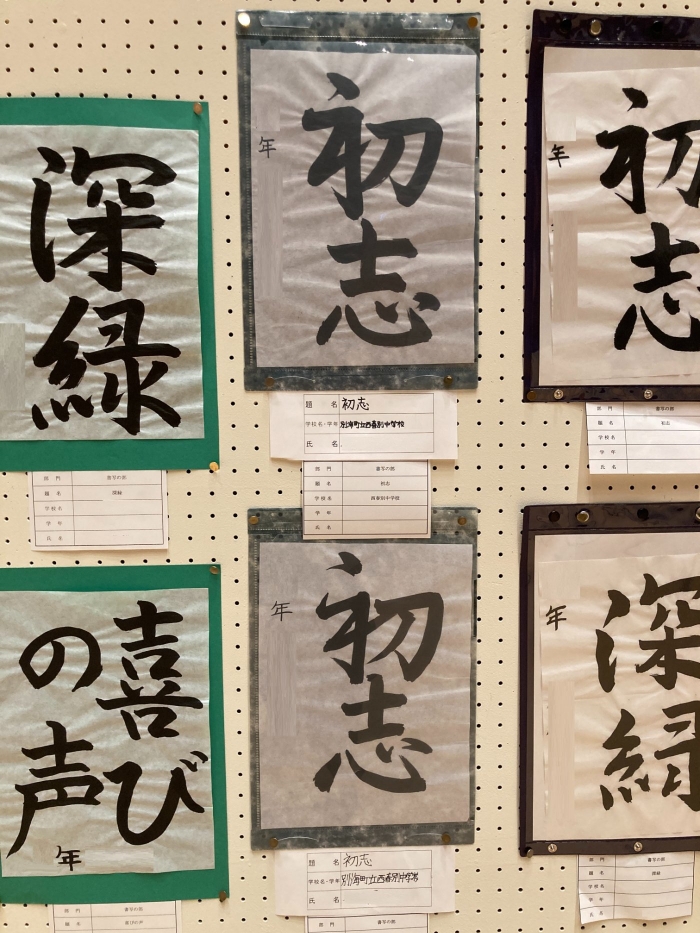 深緑
部門 書写の部
題名 深緑
学校名
学年
氏名
喜び
の声
年
部門 書写の部
題名 喜びの声
初志
年
題名 初志
学校名・学年 別海町立西春別中学校
氏名
部門 書写の部
題名 初志
学校名 西春別中学校
学年
氏名
初志
年
題名 初志
学校名・学年 別海町立西春別中学校
氏名
部門 書写の部
初志
年
部門 書写の部
題名 初志
学校名
学年
氏名
深緑
年
部門 書写の部
題名 深緑
学校名
学年
氏名